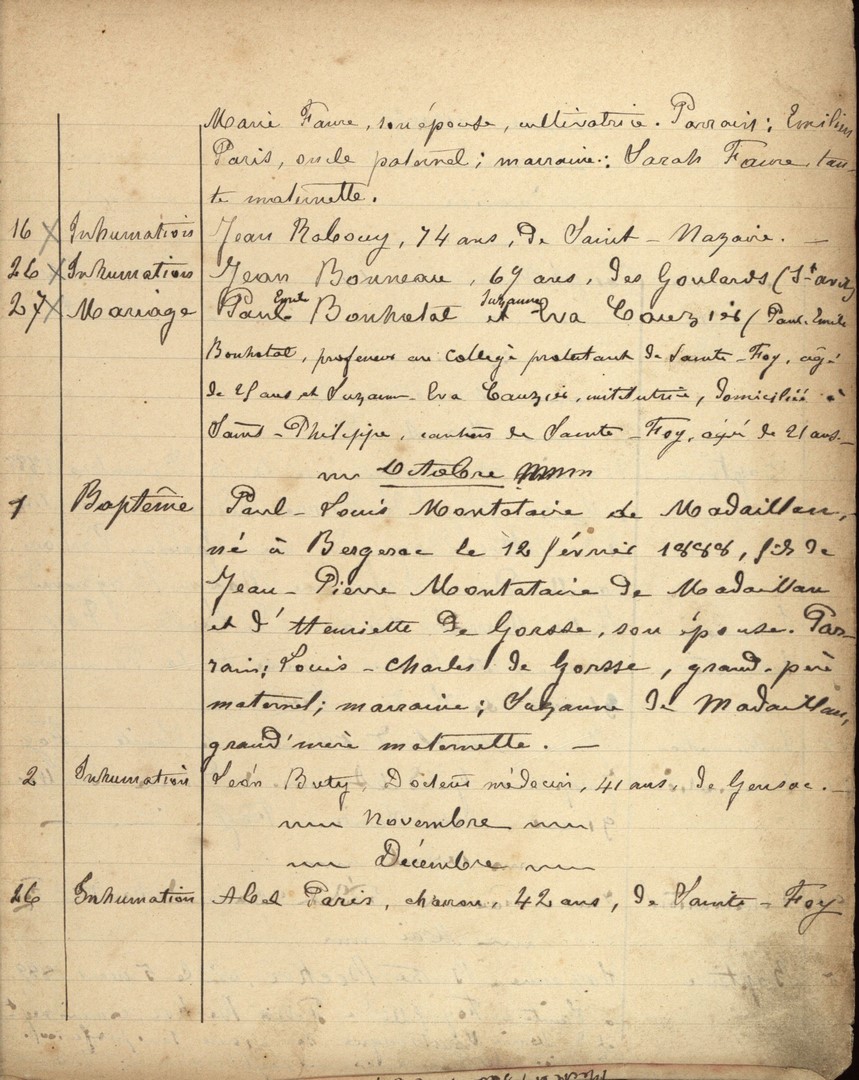 Marie Faure, son épouse, cultivatrice. Parrain: Emilien
Paris, oncle paternel; marraine: Sarah Faure, tan-
te maternelle.
16 Inhumation Jean Rabouy, 74 ans, de Saint-Nazaire. —
26 Inhumation Jean Bonneau, 69 ans, des Goulards (St avit)
27 Mariage Paul Emile Bonhotal et Suzanne Eva Cauzié (Paul-Emile
Bonhotal, professeur au collège protestant de Sainte-Foy, âgé
de 25 ans et Suzanne-Eva Cauzié, institutrice, domiciliée à
Saint-Philippe, canton de Sainte-Foy, âgée de 21 ans. —
Octobre
1 Baptême Paul-Louis Montataire de Madaillan,
né à Bergerac le 12 février 1888, fils de
Jean-Pierre Montataire de Madaillan
et d'Henriette de Gorsse, son épouse. Par-
rain: Louis-Charles de Gorsse, grand-père
maternel; marraine; Suzanne de Madaillan,
grand'mère maternelle. —
2 Inhumation Léon Buty, Docteur médecin, 41 ans, de Gensac. —
Novembre
Décembre
26 Inhumation Abel Paris, charron, 42 ans, de Sainte-Foy